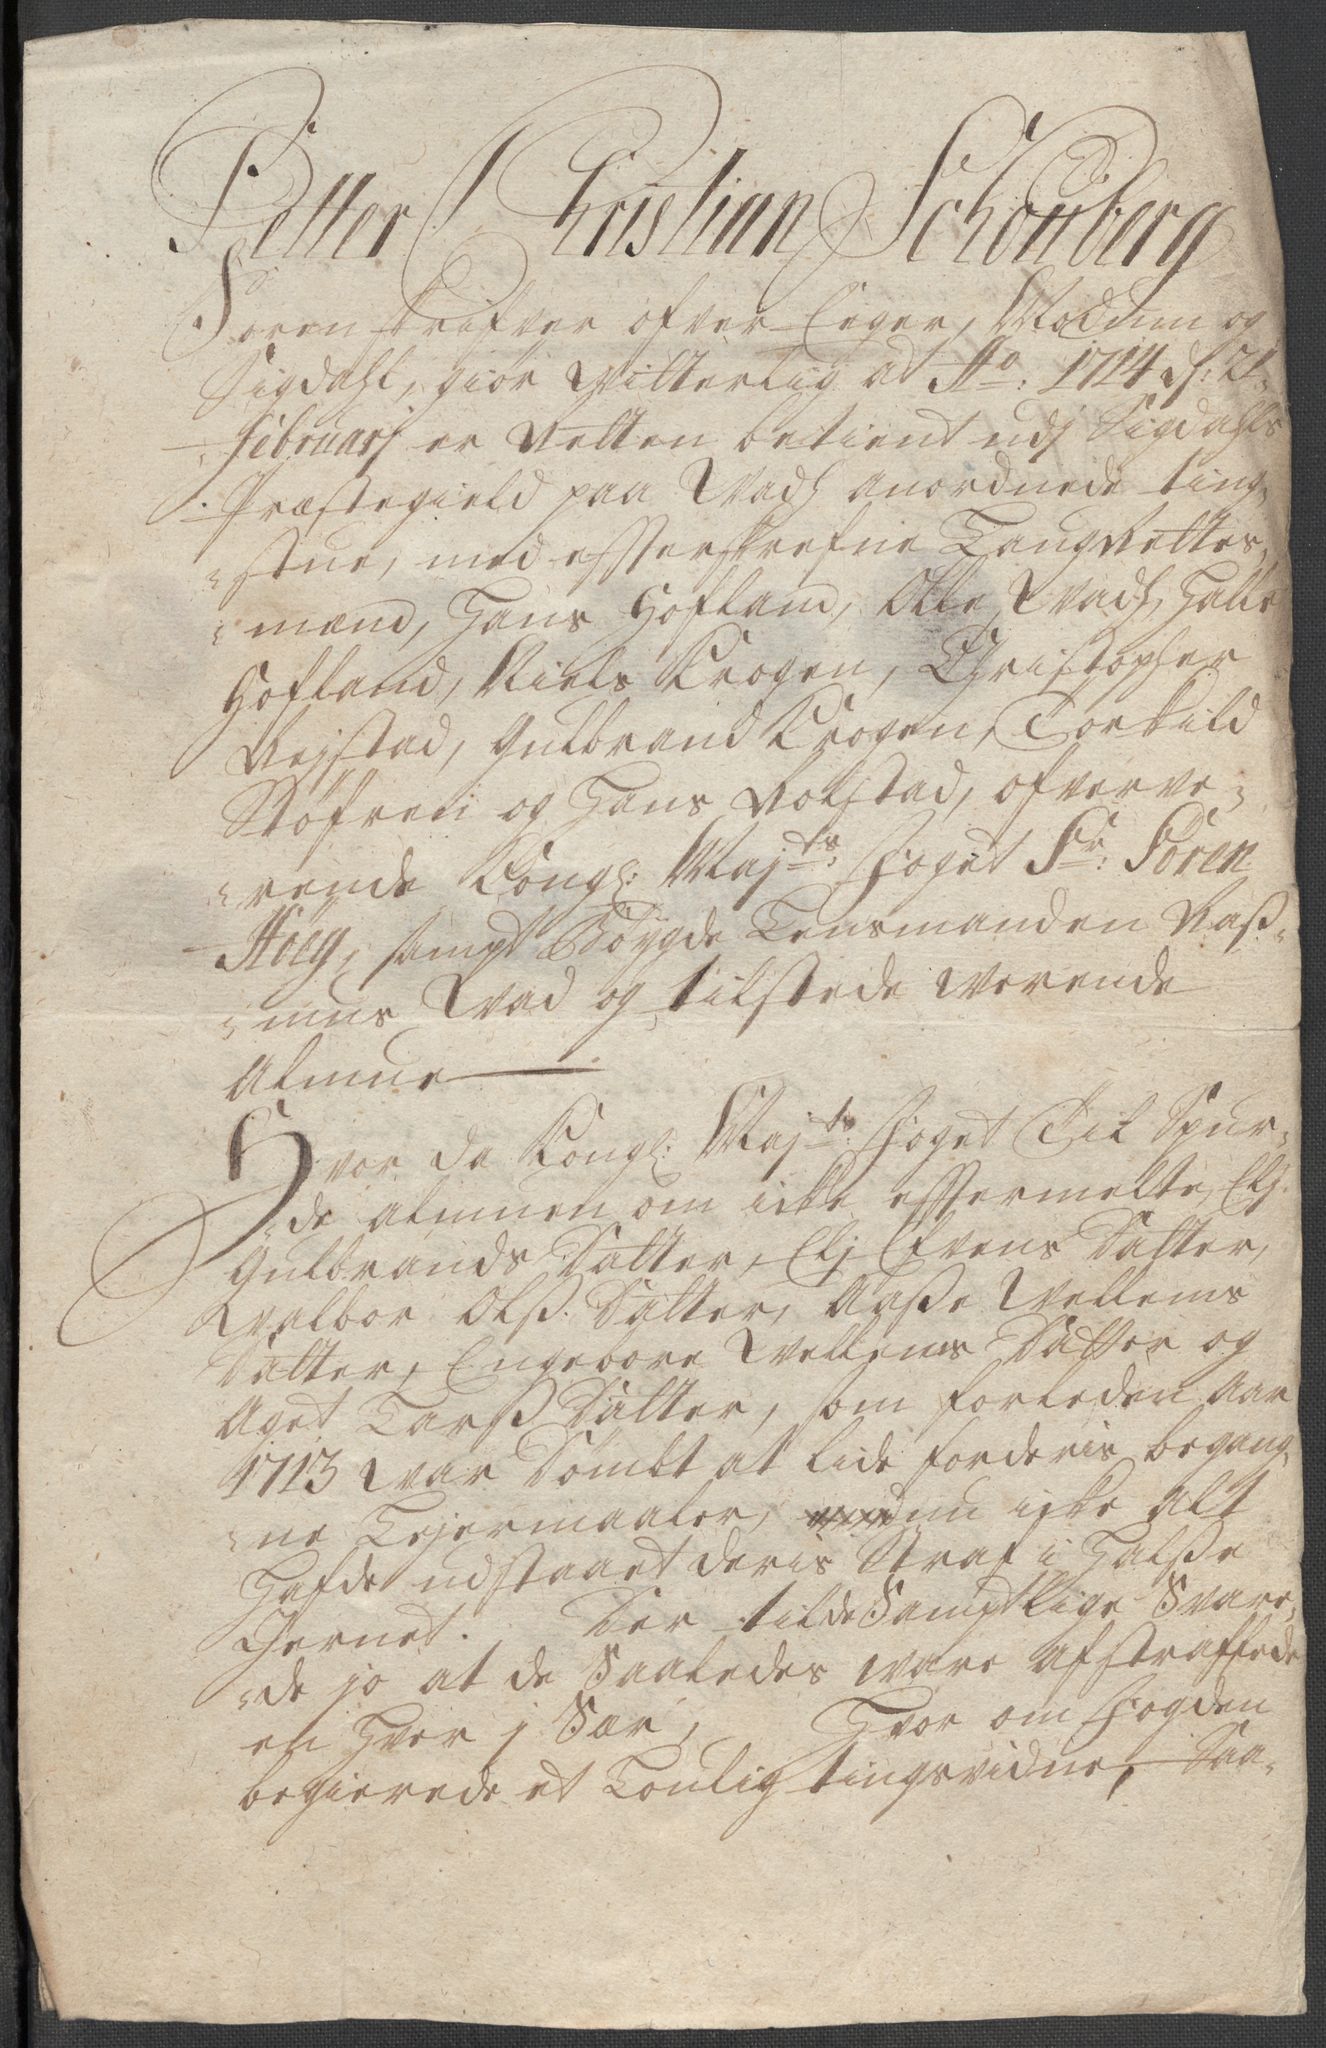 Petter Christian Schönberg
Sorenskrifver ofver Eger, Modum og
Sigdahl, giör Vitterlig at Ao: 1714 d: 21
Februarj er Retten betient udj Sigdahls
Præstegield paa Vads anordnede ting-
stue, med efterskrefne Laugrettes-
mænd, Hans Hofland, Olle Vads, Halle
Hofland, Niels Krogen, Christopher
Rejstad, Gulbrand Krogen, Torkild
Stöfren og Hans Kolstad, ofverve-
rende Kongl: Majts: foget Sr: Sören
Höeg, sampt Böygde Lensmanden Raß-
mus Wad og tilstede Werende
Almue
Hvor da Kongl: Majts: foget Til Spur-
de almuen om icke eftermelte, Elj
Gulbrands Datter, Elj Evens Datter,
Walbor Olß: Datter, Aaße Wellems
Datter, Engebore Wellems Datter og
Aget Larß Datter, som forleden Aar
1713 War Dömbt at lide for deris begang-
ne Lejermaaler, nu icke alt
Hafde udstaaet deris Straf i Halße
Jernet. Der til de Samptlige Svare-
de jo at de Saaledes ware afstraffede
en Hver j Sær, Hvor om fogden
begierede et Loulig tingsvidne, Saa-